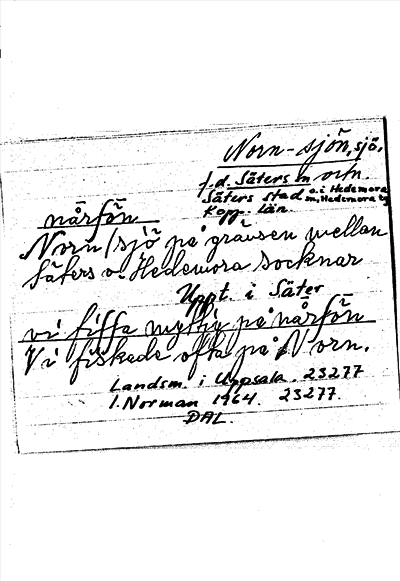 Norn-sjön, sjö.
f.d. Säters m ochn.
Säters stad o. i Hedemora
m, Hedemora
Kopp. län.
nårfön
Norn / sjö på gränsen mellan
Säters o. Hedemora socknar
Uppt. i Säter
vi fiffa myttjy på nårfön
Vi fiskade ofta på Norn.
Landsm. i Uppsala. 23277
I. Norman 1964. 23277.
DAL.